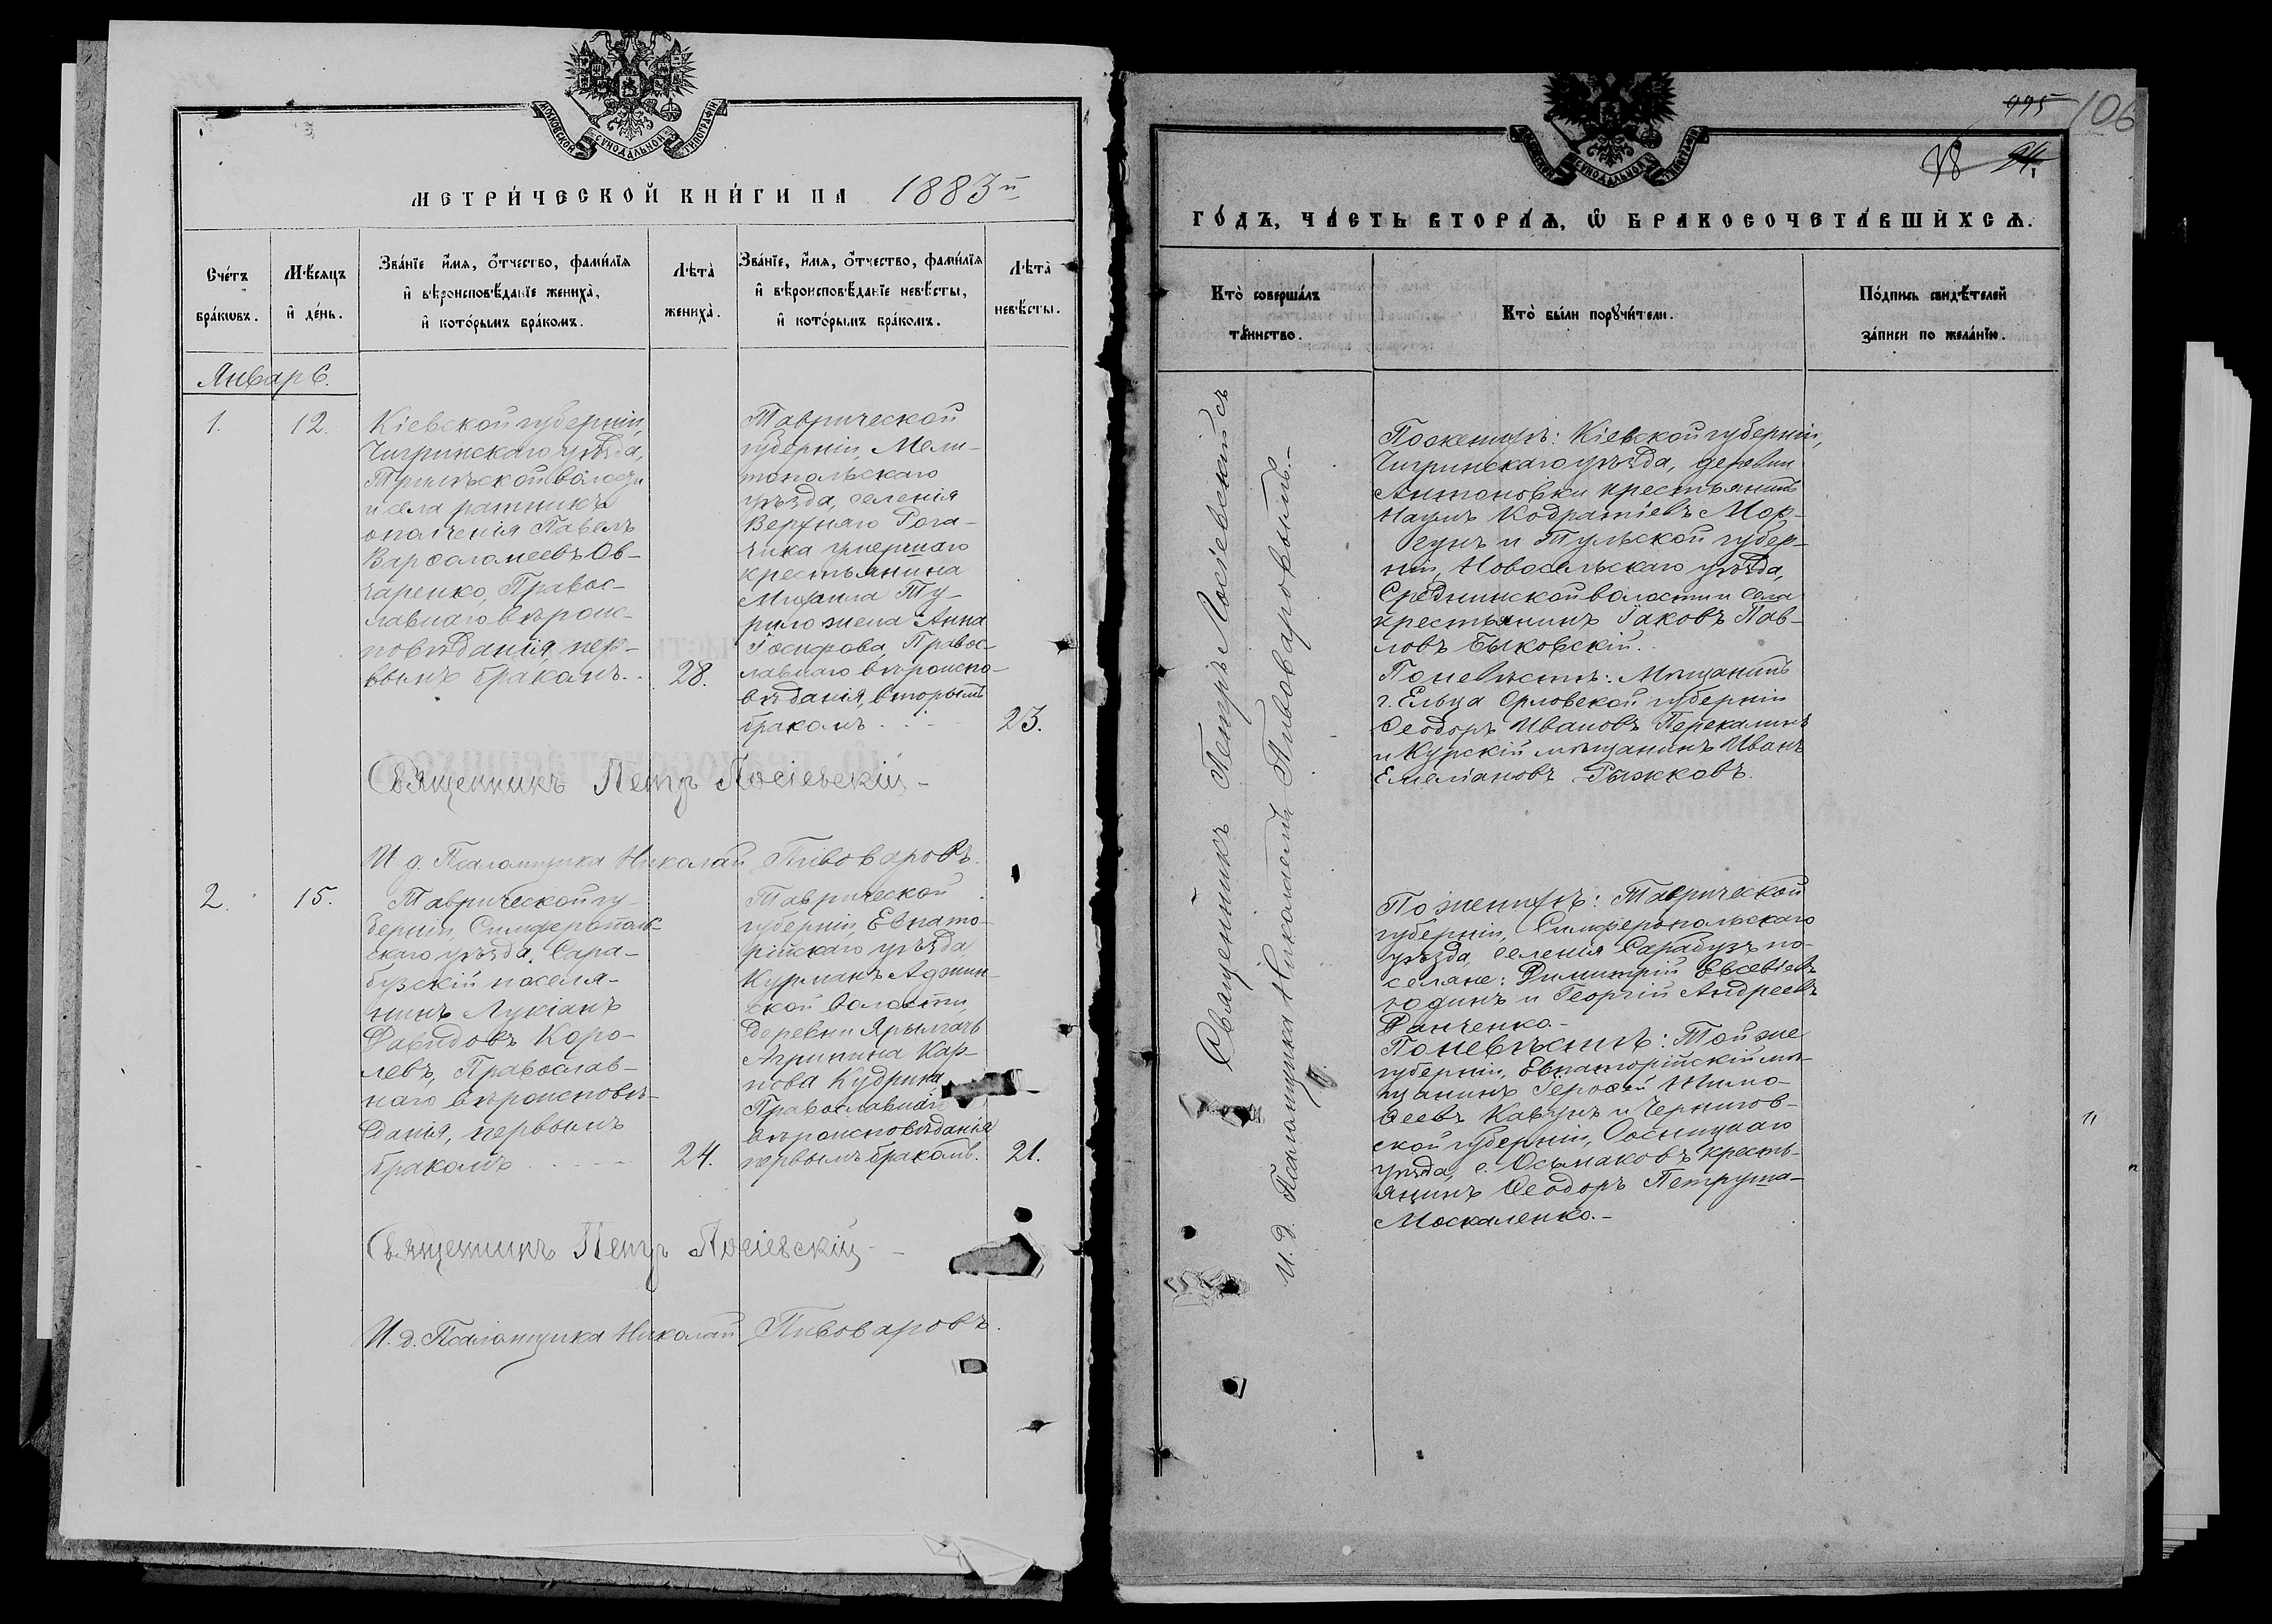 МОСКОВСКОЙ СѴНОДАЛЬНОЙ ТИПОГРАФІИ
МЕТРИ́ЧЕСКОЙ КНИ́ГИ НА 1883й
Сче́тъ бра́ковъ.
Мѣ́сяцъ и҆ де́нь.
Зва́нїе и҆́мя, ѻ҆́тчество, фами́лїя
и҆ вѣроисповѣ́данїе жениха̀,
и҆ кото́рымъ бра́комъ.
Лѣта̀ жениха̀.
Зва́нїе, и҆́мя, ѻ҆́тчество, фами́лїя
и҆ вѣроисповѣ́данїе невѣ́сты,
и҆ кото́рымъ бра́комъ.
Лѣта̀ невѣ́сты.
Январь.
1. 12.
Кіевской губерніи,
Чигринскаго уѣзда,
волости
и села ратникъ
ополченія Павелъ
Варфоломеевъ Ов-
чаренко, Правос-
лавнаго вѣроис-
повѣданія, пер-
вымъ бракомъ.
28.
Таврической
губерніи, Мели-
топольскаго
уѣзда, селенія
Верхняго Рога-
чика умершаго
крестьянина
Михаила Ту-
рило жена Анна
Іосифова, Правос-
лавнаго вѣроиспо-
вѣданія, вторымъ
бракомъ
23.
Священникъ Петръ Лосіевскій
И д. Псаломщика Николай Пивоваровъ.
2. 15.
Таврической гу-
берніи, Симферополь-
скаго уѣзда, Сара-
бузскій поселя-
нинъ Лукіанъ
Давидовъ Коро-
левъ, Православ-
наго вѣроисповѣ-
данія, первымъ
бракомъ
24.
Таврической
губерніи, Евпато-
рійскаго уѣзда
Курманъ Аджин-
ской волости,
деревни Ярылгачъ
Агрипина Кар-
пова Кудрина
Православнаго
вѣроисповѣданія
первымъ бракомъ.
21.
Священникъ Петръ Лосіевскій
И. д. Псаломщика Николай Пивоваровъ.
МОСКОВСКОЙ СѴНОДАЛЬНОЙ ТИПОГРАФІИ
995 106
78 94
ГО́ДЪ, ЧА́СТЬ ВТОРА́Ѧ, Ѡ҆ БРАКОСОЧЕТА́ВШИХСѦ.
Кто̀ соверша́лъ
та́инство.
Кто̀ бы́ли порꙋчи́тели.
По́дпись свидѣ́телей
за́писи по жела́нїю.
Священникъ Петръ Лосіевскій съ
и. д. Псаломщика Николаемъ Пивоваровымъ.
По женихѣ: Кіевской губерніи,
Чигринскаго уѣзда, деревни
Антоновки крестьянинъ
Наумъ Кодратіевъ Мор-
гунъ и Тульской губер-
ніи, Новосильскаго уѣзда,
волости и села
крестьянинъ Іаковъ Пав-
ловъ Быковскій.
По невѣстѣ: Мѣщанинъ
г. Ельца Орловской губерніи
Ѳеодоръ Ивановъ Перекалинъ
и Курскій мѣщанинъ Иванъ
Емеліановъ Рыжковъ.
По женихѣ: Таврической
губерніи, Симферопольскаго
уѣзда, селенія Сарабузъ по-
селяне: Димитрій Евсевіевъ
Юдинъ и Георгій Андреевъ
Ганченко.
По невѣстѣ: Той же
губерніи, Евпаторійскій мѣ-
щанинъ Тимо-
ѳеевъ Кавунъ и Чернигов-
ской губерніи, Сосницкаго
уѣзда, с. Осьмаковъ кресть-
янинъ Ѳеодоръ Петруша-
Москаленко.